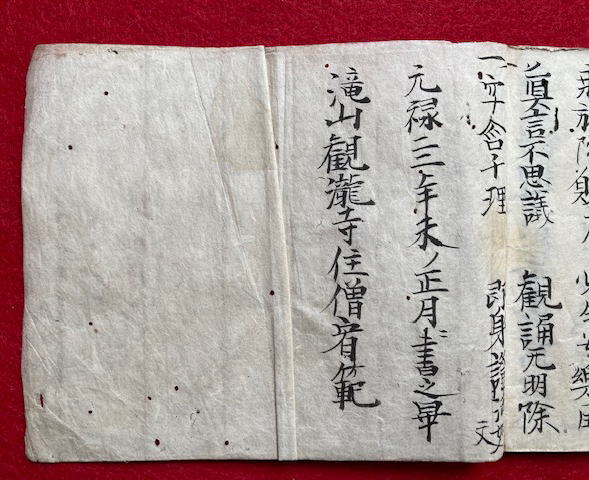 生安樂
真言不思議 觀誦无明除
一字含千理 即身證法如 文
元禄二二年未ノ正月ニ書之畢
滝山觀瀧寺住僧宥範